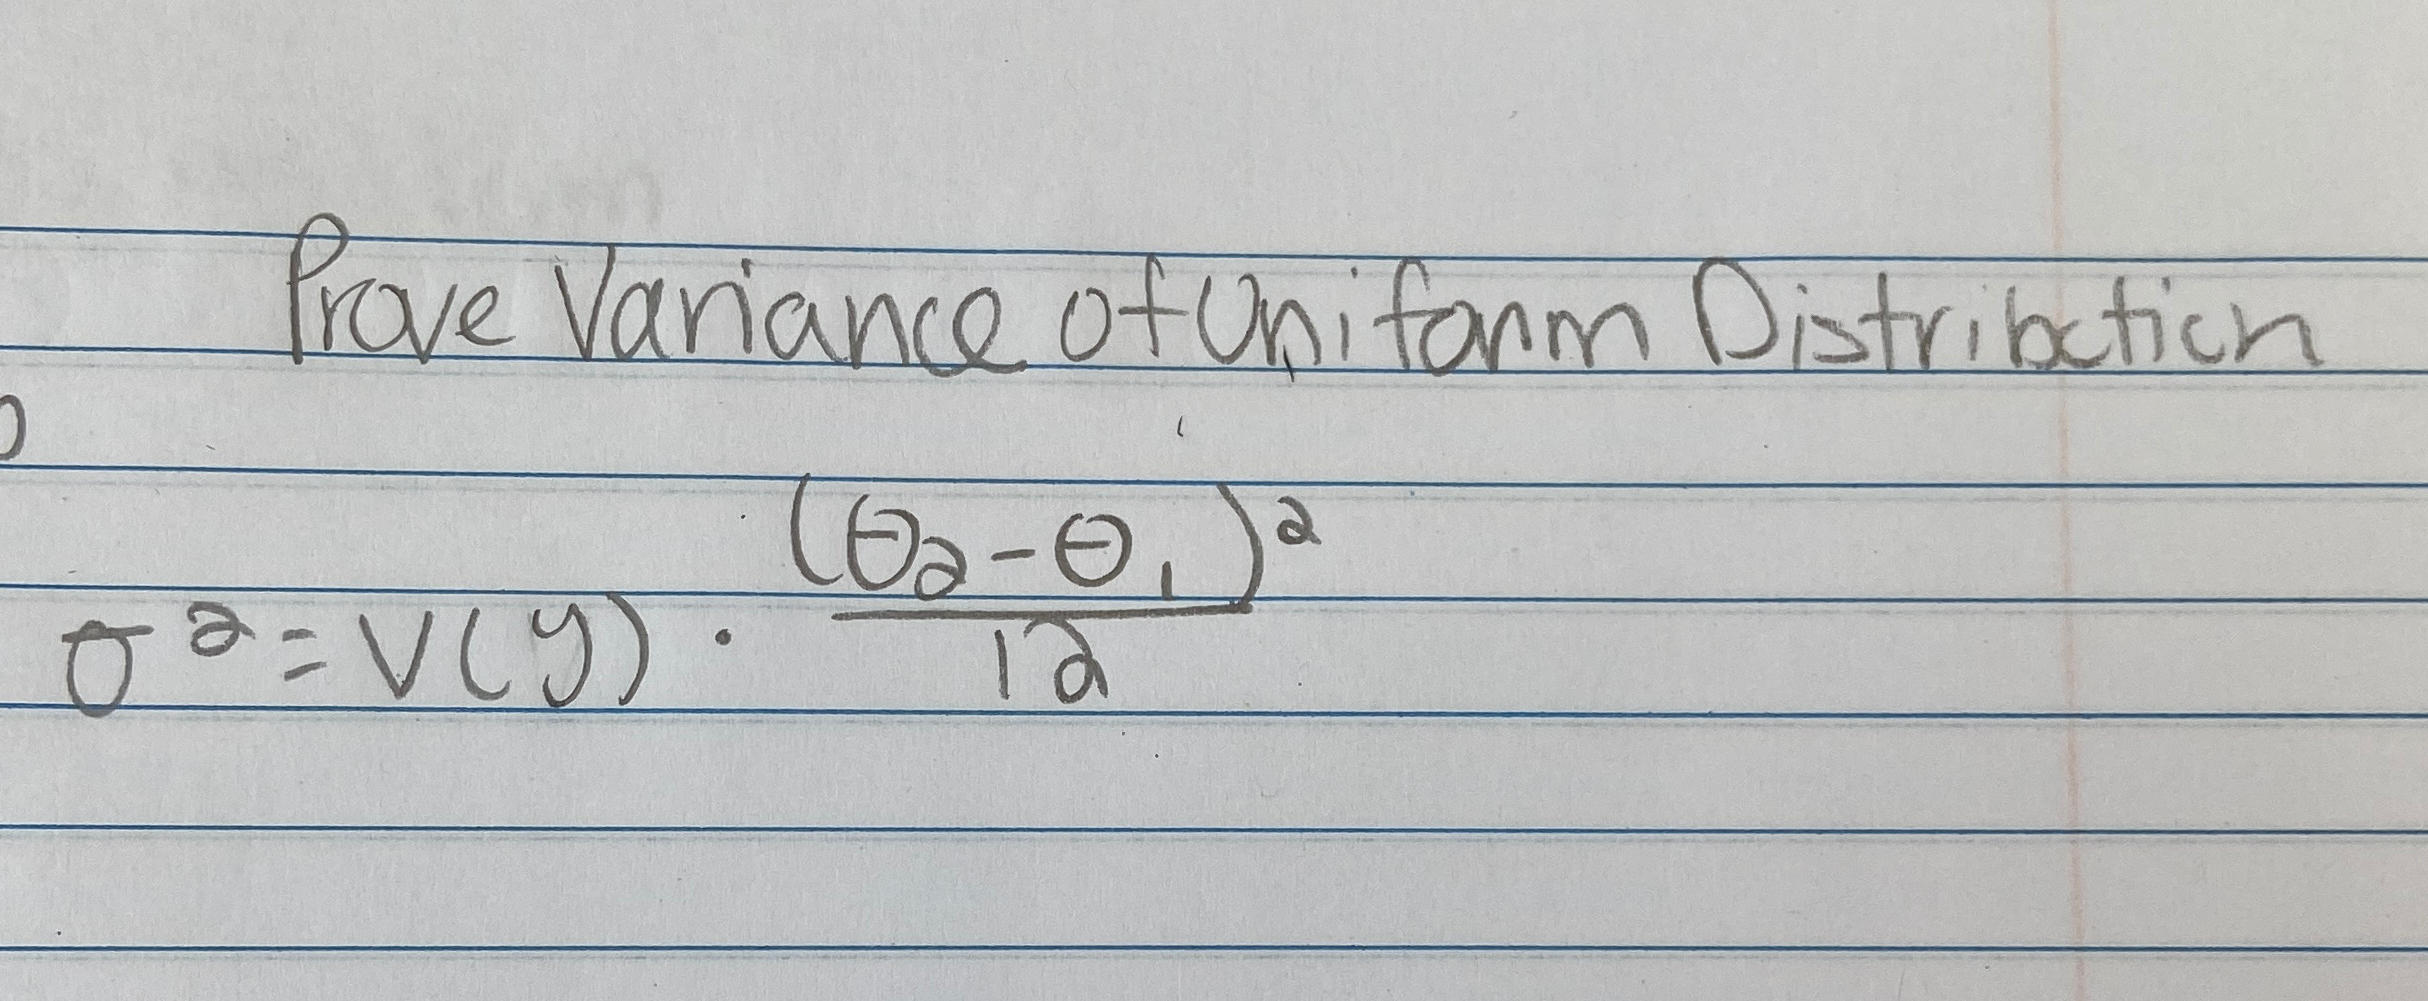 Prove Variance of Uniform Distribution
σ² = V(y) · (θ₂ - θ₁)² / 12